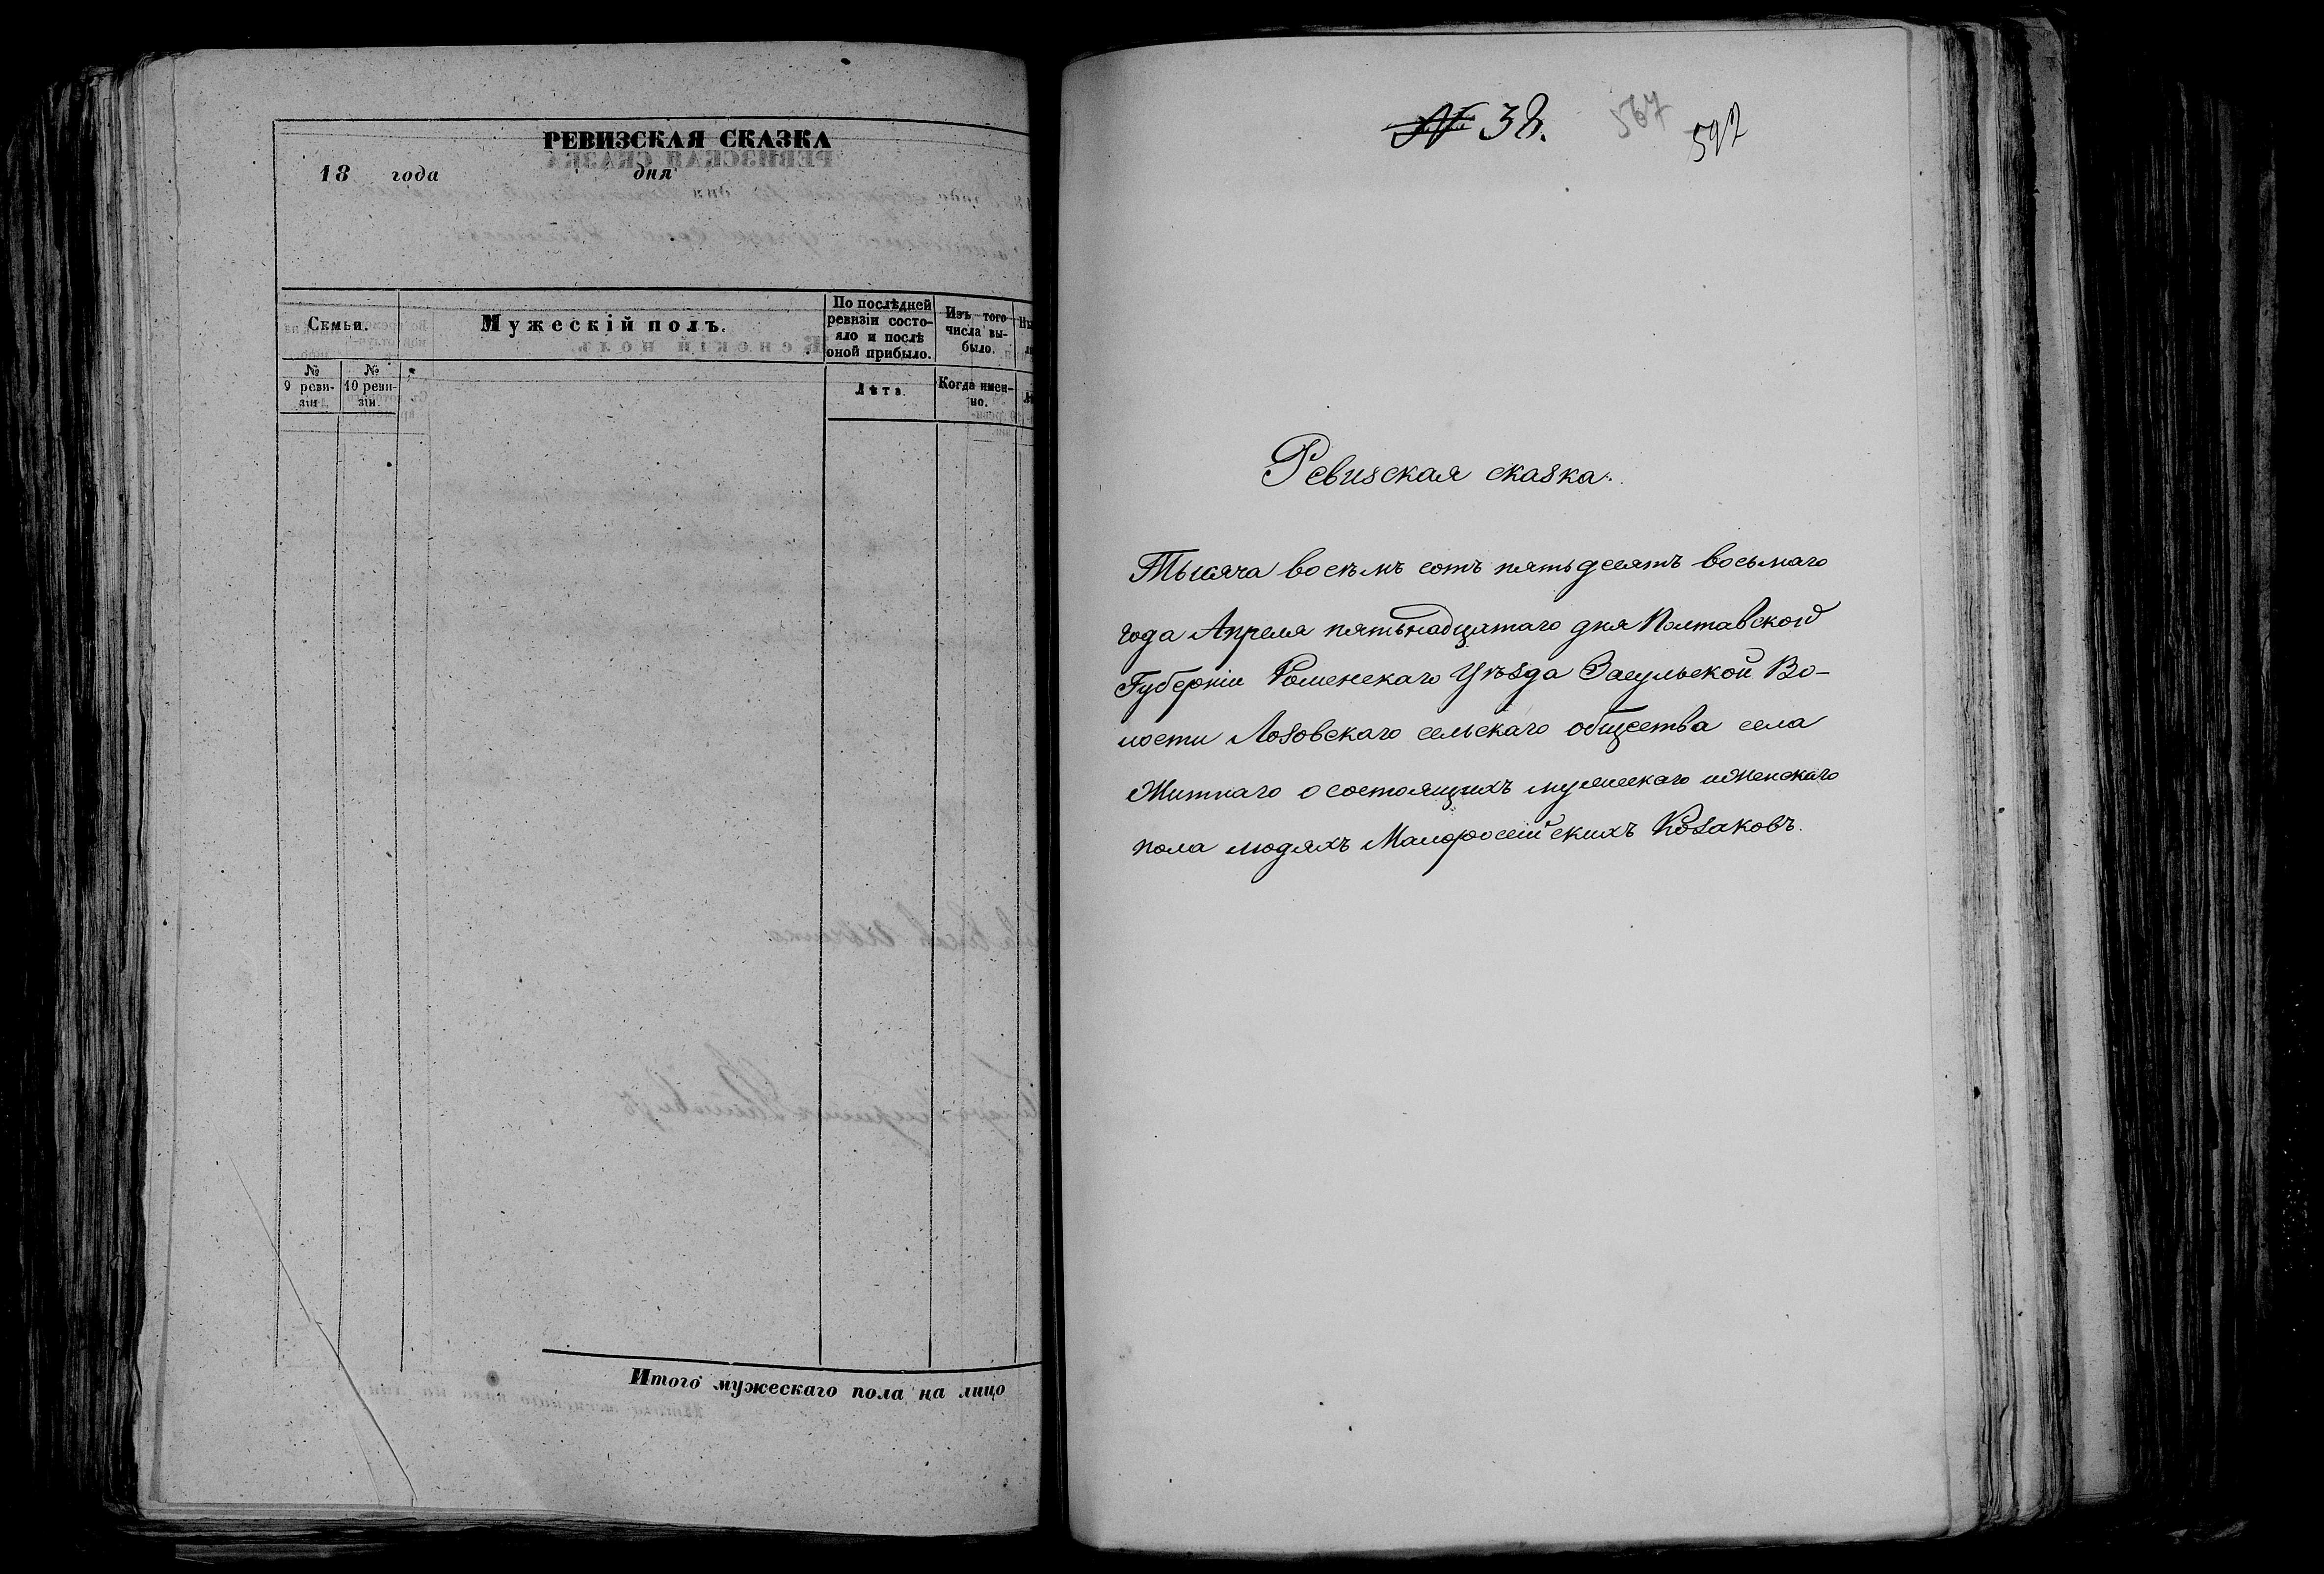 РЕВИЗСКАЯ СКАЗКА
18 года дня
Семьи.
Мужескій полъ.
По послѣдней
ревизіи состо-
яло и послѣ
оной прибыло.
Изъ того
числа вы-
было.
№
9 реви-
зіи.
№
10 реви-
зіи.
Лѣта.
Когда имен-
но.
Итого мужескаго пола на лицо
№ 38. 567 597
Ревизская сказка.
Тысяча восемъ сотъ пятьдесятъ восьмаго
года Апреля пятьнадцатаго дня Полтавской
Губерніи Роменскаго Уѣзда Засульской Во-
лости Лозовскаго сельскаго общества села
Житнаго о состоящихъ мужескаго и женскаго
пола людяхъ Малоросійскихъ Козаковъ.